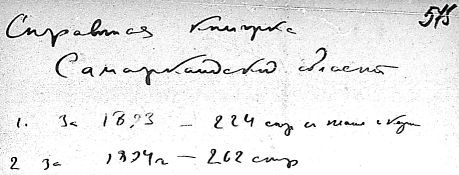 545
Справочная книжка
Самаркандской области
1. За 1893 – 224 стр и план и карт
2 За 1894 г – 262 стр